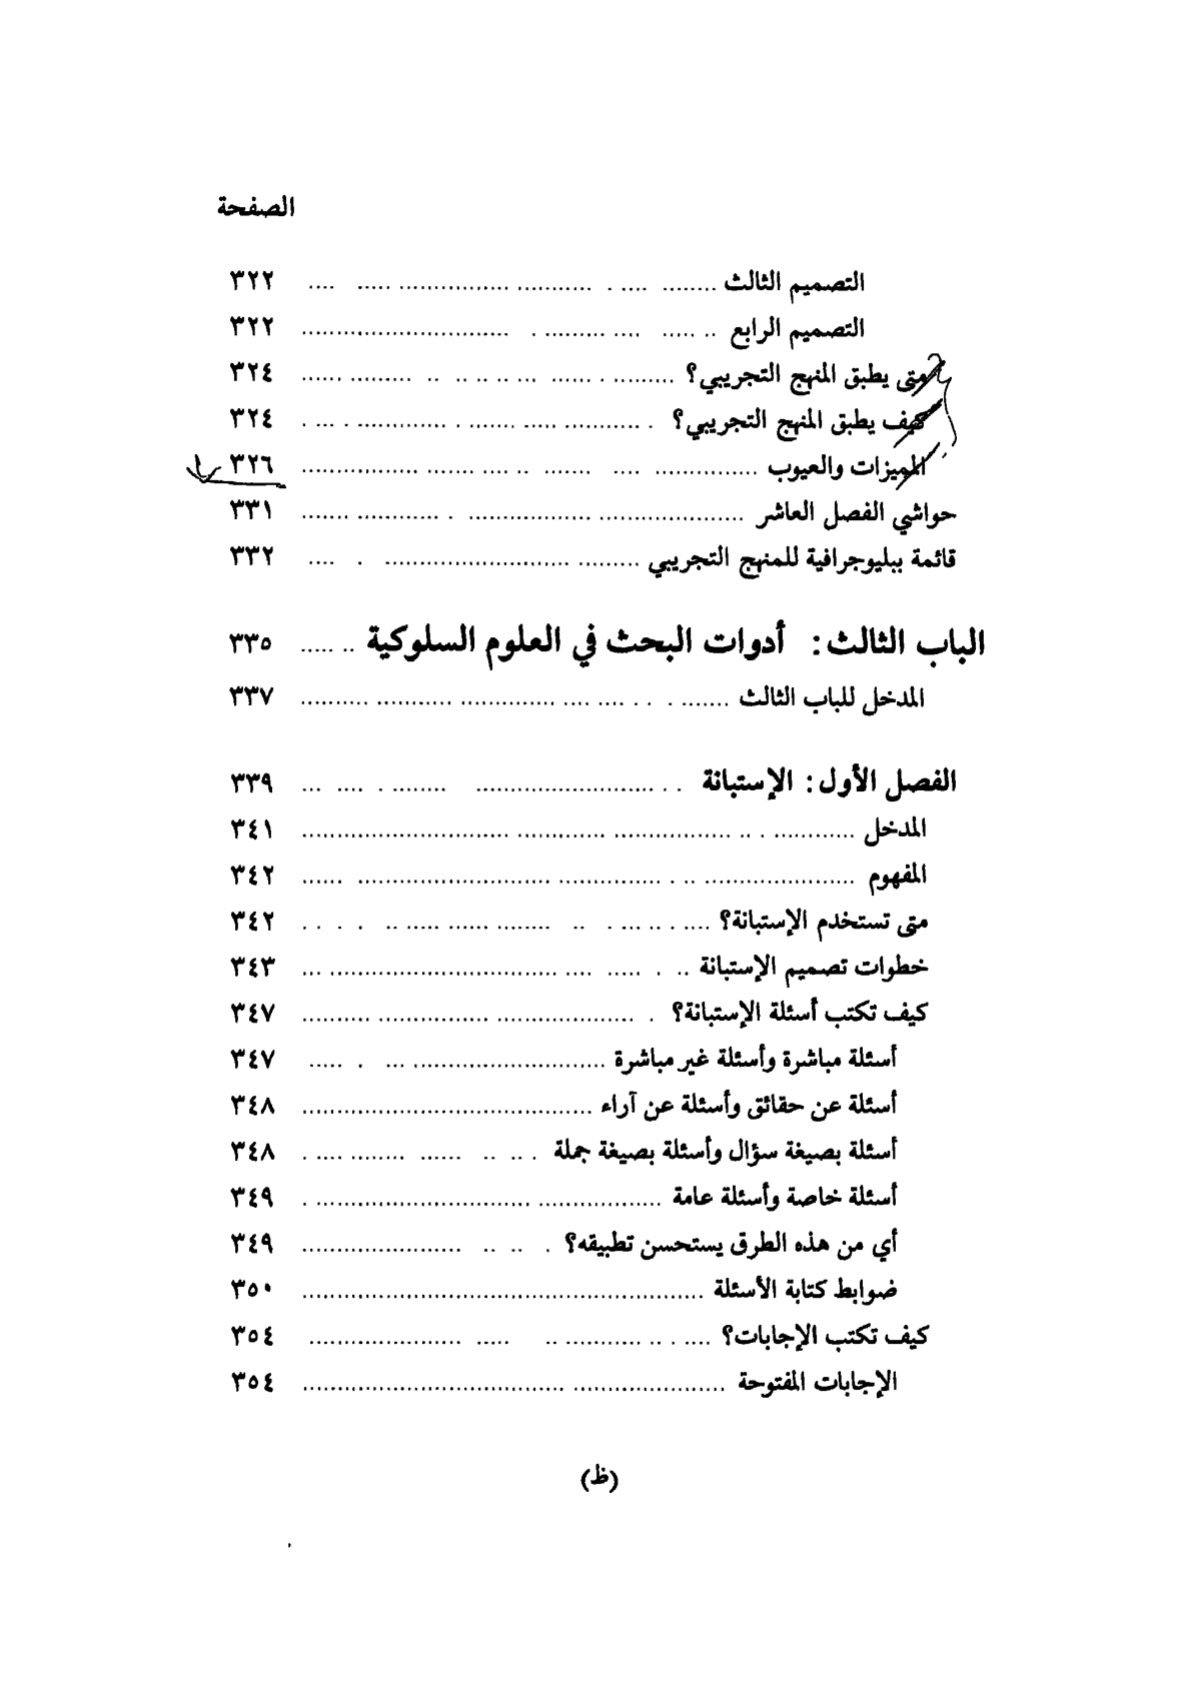 الصفحة
التصميم الثالث ........ .... . ........... ................ ..... .... ٣٢٢
التصميم الرابع .. ..... .... ......... . .............................. ٣٢٢
متى يطبق المنهج التجريبي؟ ......... . ...... ... .. .. .. .. ......... ...... ٣٢٤
كيف يطبق المنهج التجريبي؟ . ........... ..... ....... . ............. . ... . ٣٢٤
المميزات والعيوب ............... .... ....... .. .... ....... ................. ٣٢٦
حواشي الفصل العاشر ..................... .................. . ............ ....... ٣٣١
قائمة ببليوجرافية للمنهج التجريبي ......... ........................... . .... ٣٣٢
الباب الثالث: أدوات البحث في العلوم السلوكية .. ..... ٣٣٥
المدخل للباب الثالث ....... . . . .... .... .............. ........... .......... ٣٣٧
الفصل الأول: الإستبانة . . .......................... ........ . .... ... ٣٣٩
المدخل ............ . .. ................. ............. .............................. ٣٤١
المفهوم ...................... .. . ............... ............................ ...... ٣٤٢
متى تستخدم الإستبانة؟ .... . .. ... . .. ........ ...... ..... .. . . . . ٣٤٢
خطوات تصميم الإستبانة .. . ..... .... ................................. ... ٣٤٣
كيف تكتب أسئلة الإستبانة؟ . .................... ................ .......... ٣٤٧
أسئلة مباشرة وأسئلة غير مباشرة ............................ ... . ..... ٣٤٧
أسئلة عن حقائق وأسئلة عن آراء .......................................... ٣٤٨
أسئلة بصيغة سؤال وأسئلة بصيغة جملة . .. .. ...... ........ .... . ٣٤٨
أسئلة خاصة وأسئلة عامة .................. ............................... . ٣٤٩
أي من هذه الطرق يستحسن تطبيقه؟ . .. .. ....................... ٣٤٩
ضوابط كتابة الأسئلة .......................................................... ٣٥٠
كيف تكتب الإجابات؟ .... . .. ........... .. ..... ...................... ٣٥٤
الإجابات المفتوحة ...................... ...................................... ٣٥٤
(ظ)